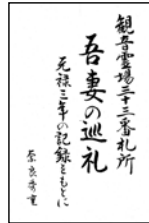 観音霊場三十三番札所
吾妻の巡礼
元禄三年の記録をもとに
奈良秀重